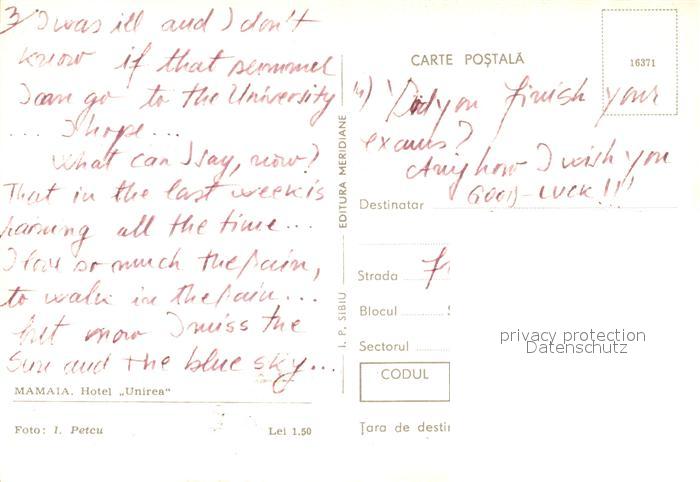 3) I was ill and I don't
know if that summer
I can go to the University
... I hope...
What can I say, now?
That in the last week is
raining all the time...
I love so much the rain,
to walk in the rain...
but now I miss the
Sun and the blue sky...
MAMAIA. Hotel „Unirea"
Foto: I. Petcu Lei 1,50
I. P. SIBIU — EDITURA MERIDIANE
CARTE POȘTALĂ
16371
4) Did you finish your
exams?
Anyhow I wish you
GOOD-LUCK!!!
Destinatar
Strada
Blocul
Sectorul
CODUL
Țara de desti
privacy protection
Datenschutz